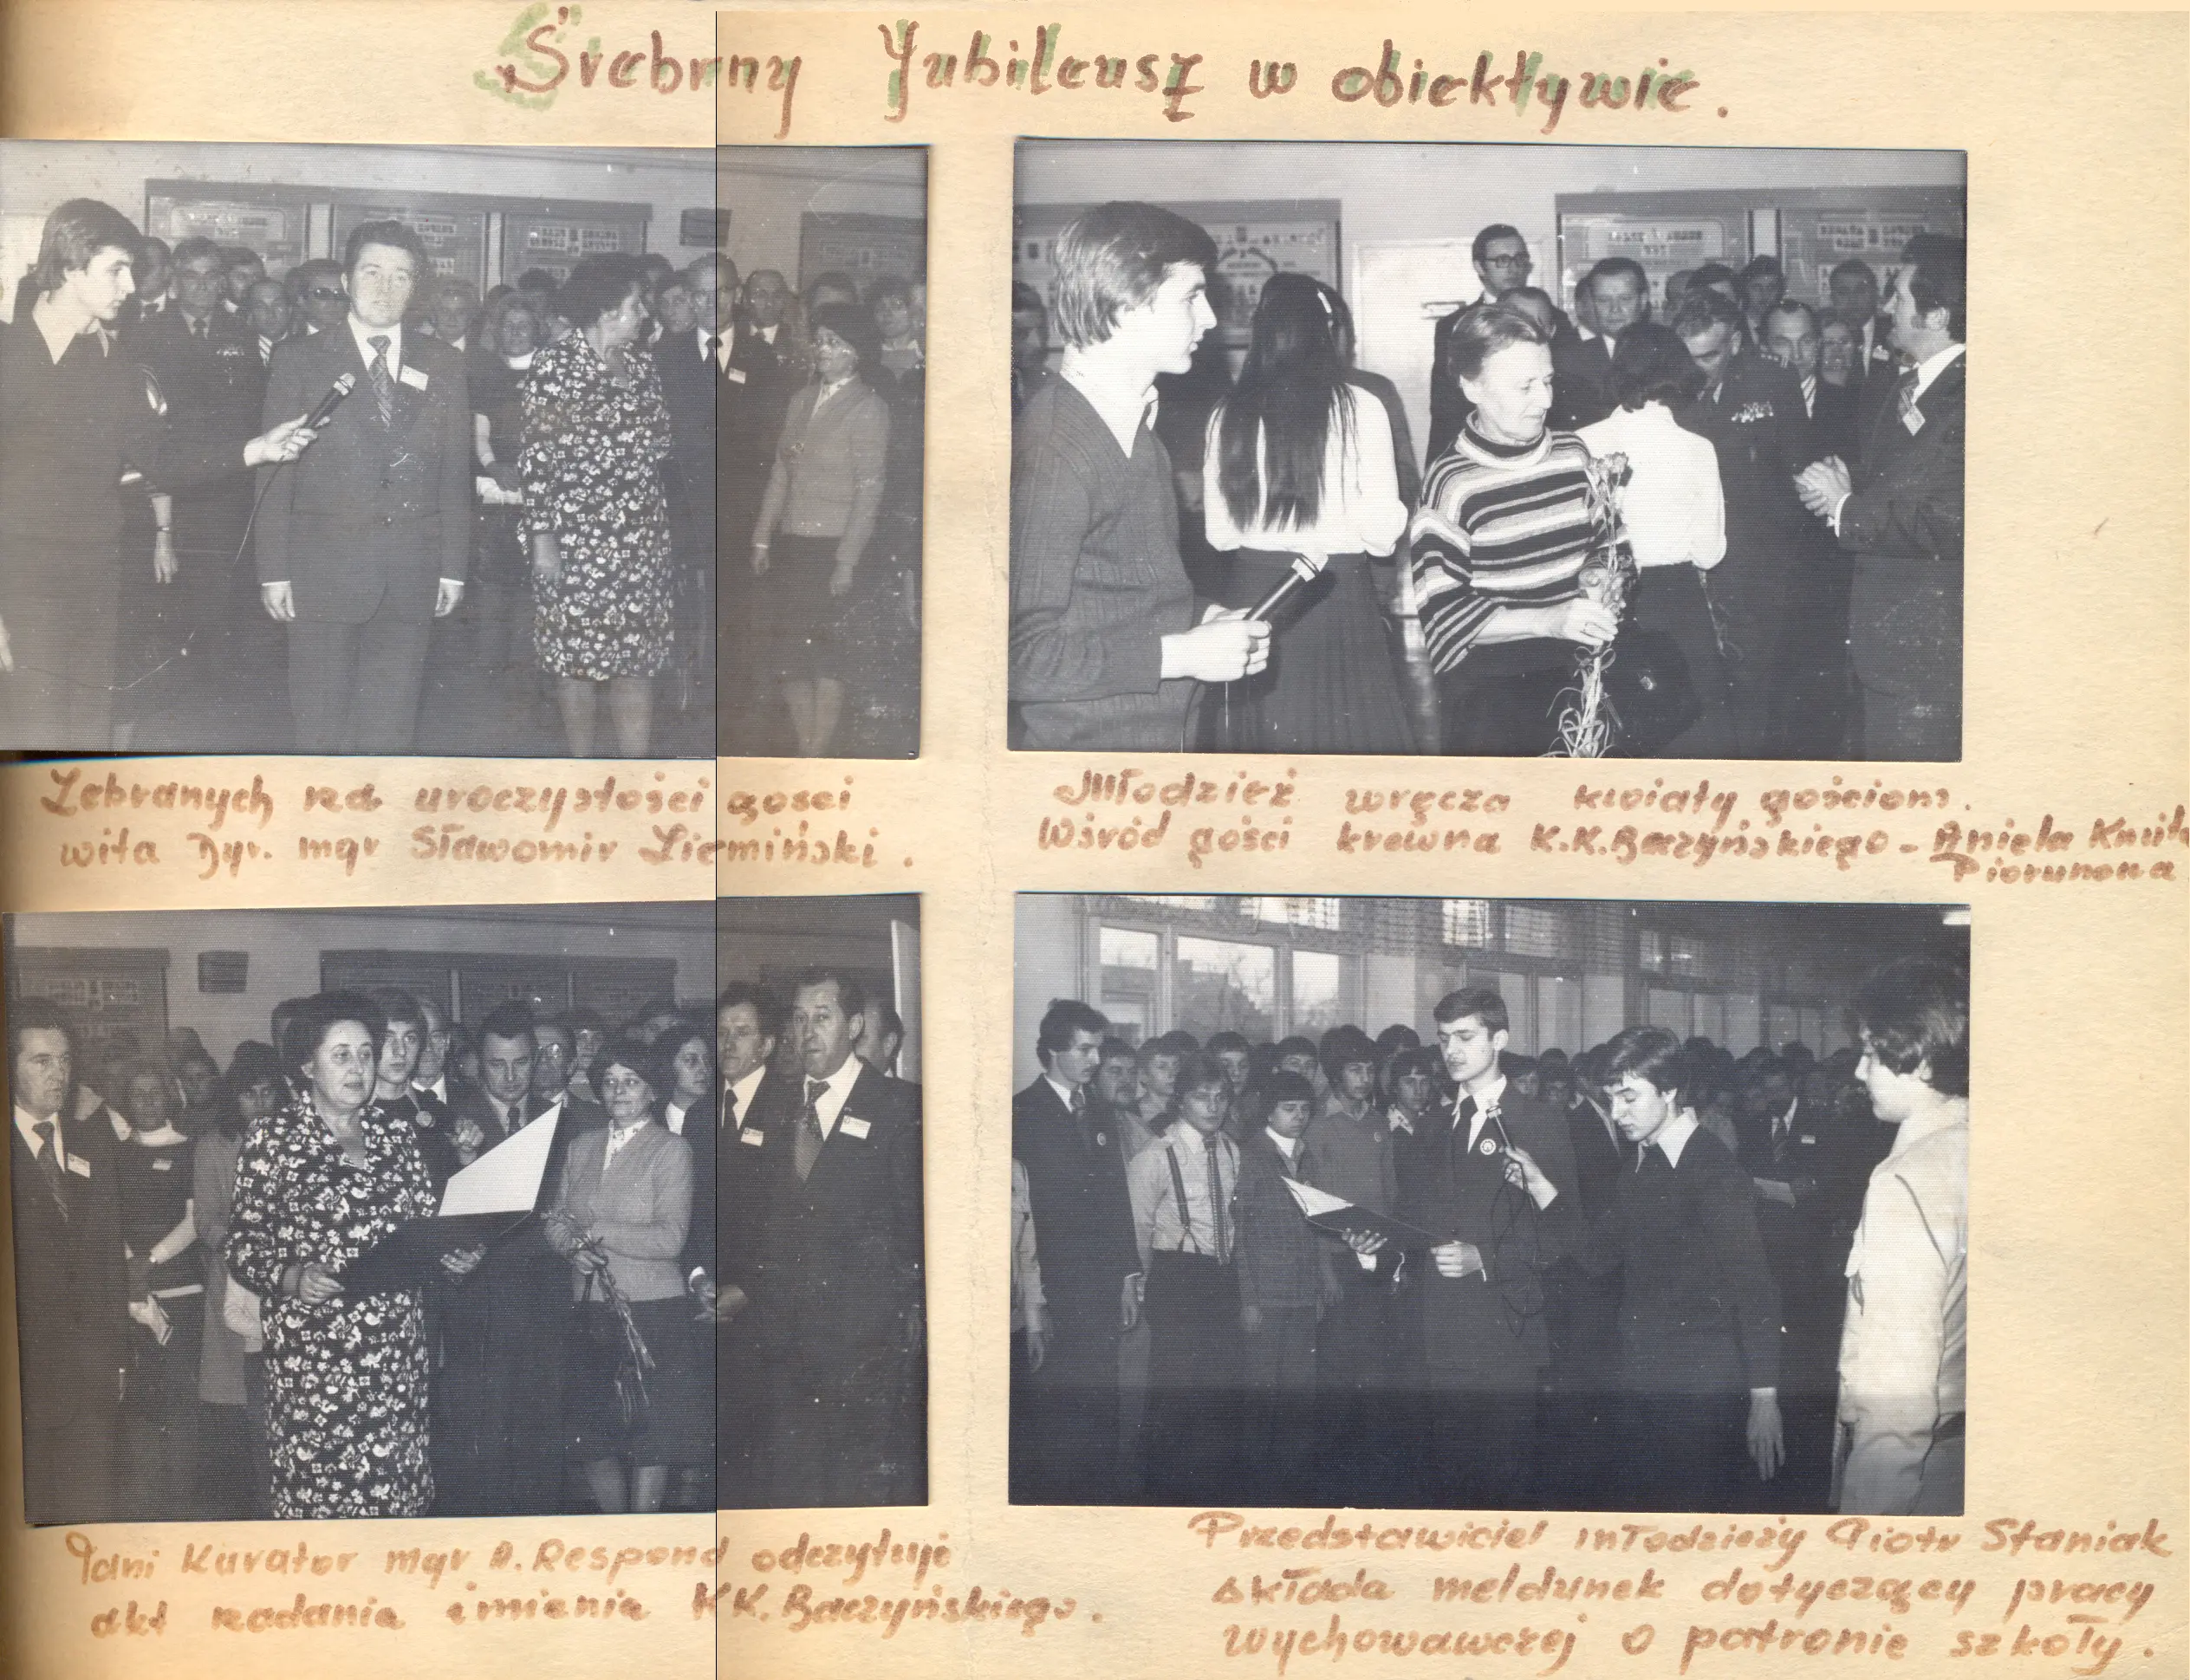 Srebrny Jubileusz w obiektywie.
Zebranych na uroczystości gości
wita Dyr. mgr Sławomir Ziemiński.
Młodzież wręcza kwiaty gościom.
Wśród gości krewna K.K.Baczyńskiego - Aniela Kmita
Piorunowa
Pani Kurator mgr A. Respond odczytuje
akt nadania imienia K.K. Baczyńskiego.
Przedstawiciel młodzieży Piotr Staniak
składa meldunek dotyczący pracy
wychowawczej o patronie szkoły.